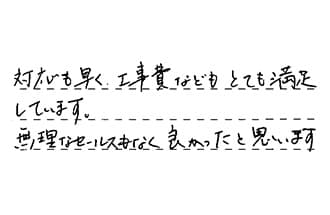 対応も早く、工事費などもとても満足
しています。
無理なセールスもなく良かったと思います